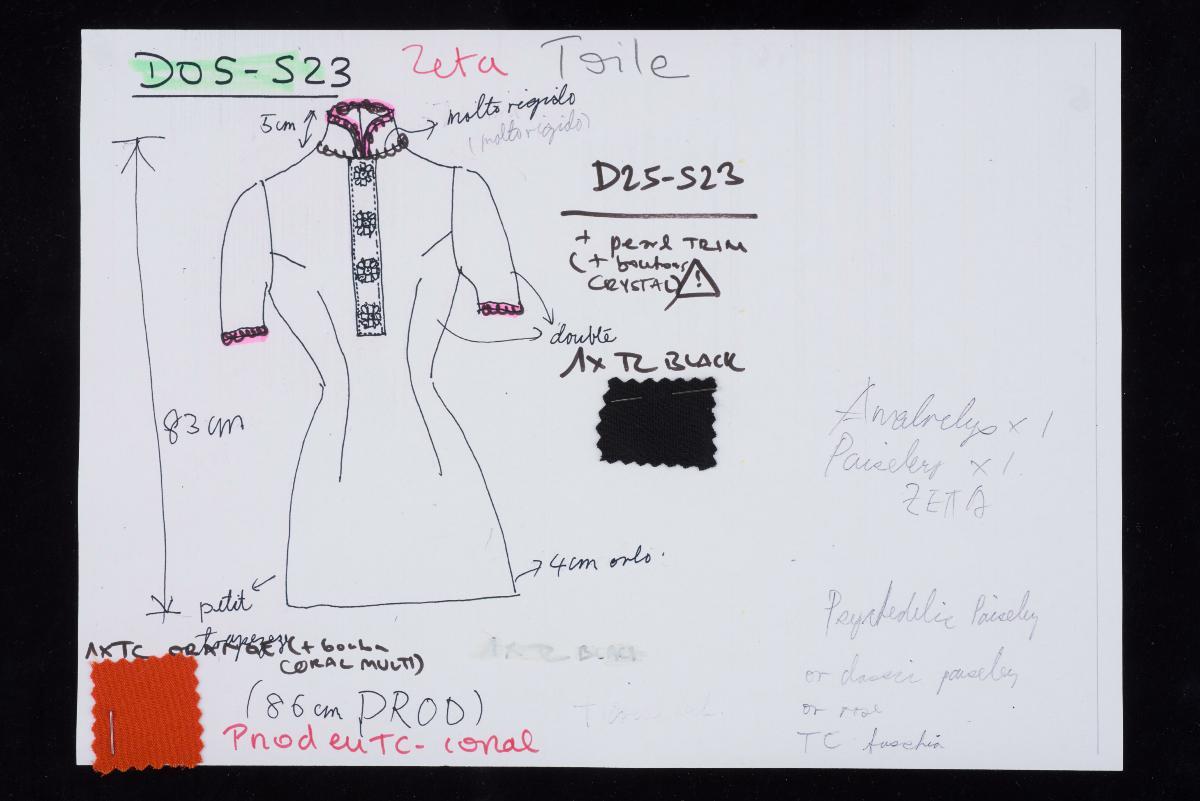 D05-S23
Zeta Toile
5cm
molto rigido
(molto rigido)
D25-S23
+ pearl TRIM
(+ boutons
CRYSTAL) !
doublé
1x TZ BLACK
83 cm
x 1
Paiseley x 1.
ZETTA
4cm orlo.
petit
1xTC ORANGE (+
CORAL MULTI)
1x TZ BLACK
(86cm PROD)
Prod en TC-coral
Psychedelic Paiseley
or classic paiseley
or rose
TC fuschia